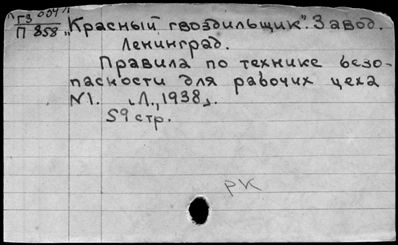 ГЗ 004
П 858
„Красный гвоздильщик". Завод.
Ленинград.
Правила по технике безо-
пасности для рабочих цеха
N1. „Л., 1938„.
59 стр.
РК